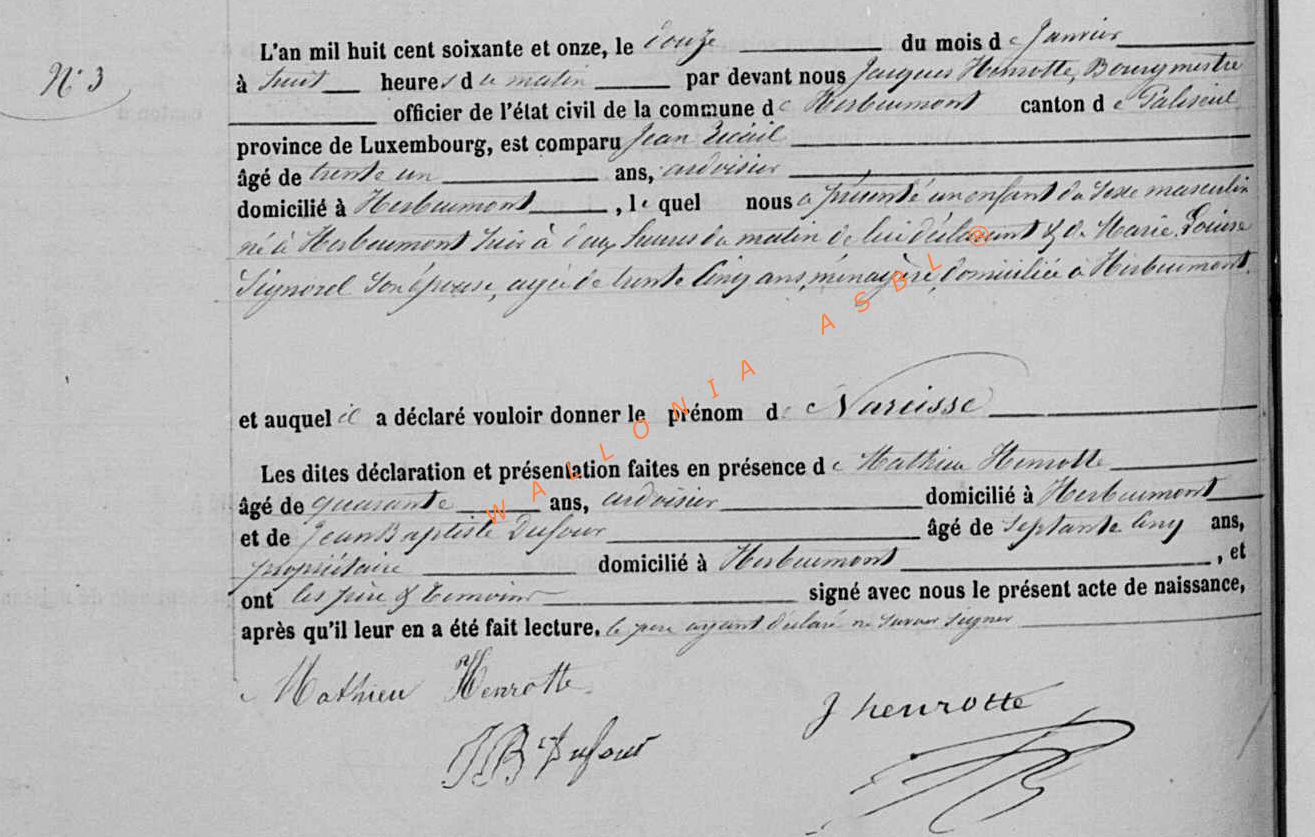 N° 3
L'an mil huit cent soixante et onze, le douze du mois de Janvier
à huit heures du matin par devant nous Jacques Henrotte, Bourgmestre
officier de l'état civil de la commune de Herbeumont canton de Paliseul
province de Luxembourg, est comparu Jean
âgé de trente un ans, ardoisier
domicilié à Herbeumont, le quel nous a présenté un enfant du sexe masculin
né à Herbeumont hier à deux heures du matin de lui déclarant & de Marie Louise
Signorel son épouse, agée de trente cinq ans, ménagère, domiciliée à Herbeumont.
et auquel il a déclaré vouloir donner le prénom de Narcisse
Les dites déclaration et présentation faites en présence de Mathieu Henrotte
âgé de quarante ans, ardoisier domicilié à Herbeumont
et de Jean Baptiste Dufour âgé de septante cinq ans,
propriétaire domicilié à Herbeumont, et
ont les père & temoins signé avec nous le présent acte de naissance,
après qu'il leur en a été fait lecture. le père ayant déclaré ne savoir signer
Mathieu Henrotte
J henrotte
JB Dufour
WALLONIA ASBL ®